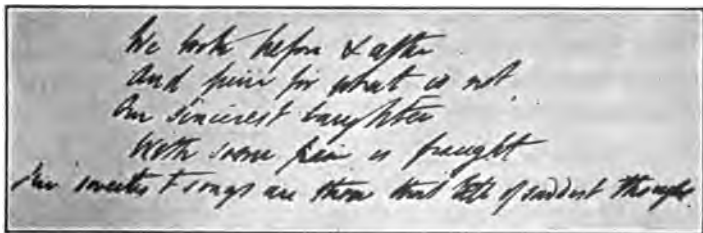 We look before & after
And pine for what is not.
Our sincerest laughter
With some pain is fraught
Our sweetest songs are those that tell of saddest thought.